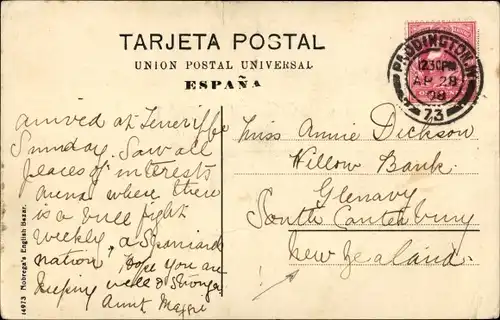 TARJETA POSTAL
UNION POSTAL UNIVERSAL
ESPAÑA
PADDINGTON. W.
12 30 PM
AP 28
08
73
arrived at Teneriffe
Sunday. Saw all
places of interests
arena where there
is a bull fight
weekly, a Spaniard
nation, Hope you are
keeping well & strong
Aunt Maggie
Miss Annie Dickson
Willow Bank.
Glenavy
South Canterbury
New Zealand.
14973 Nobrega's English Bazar.